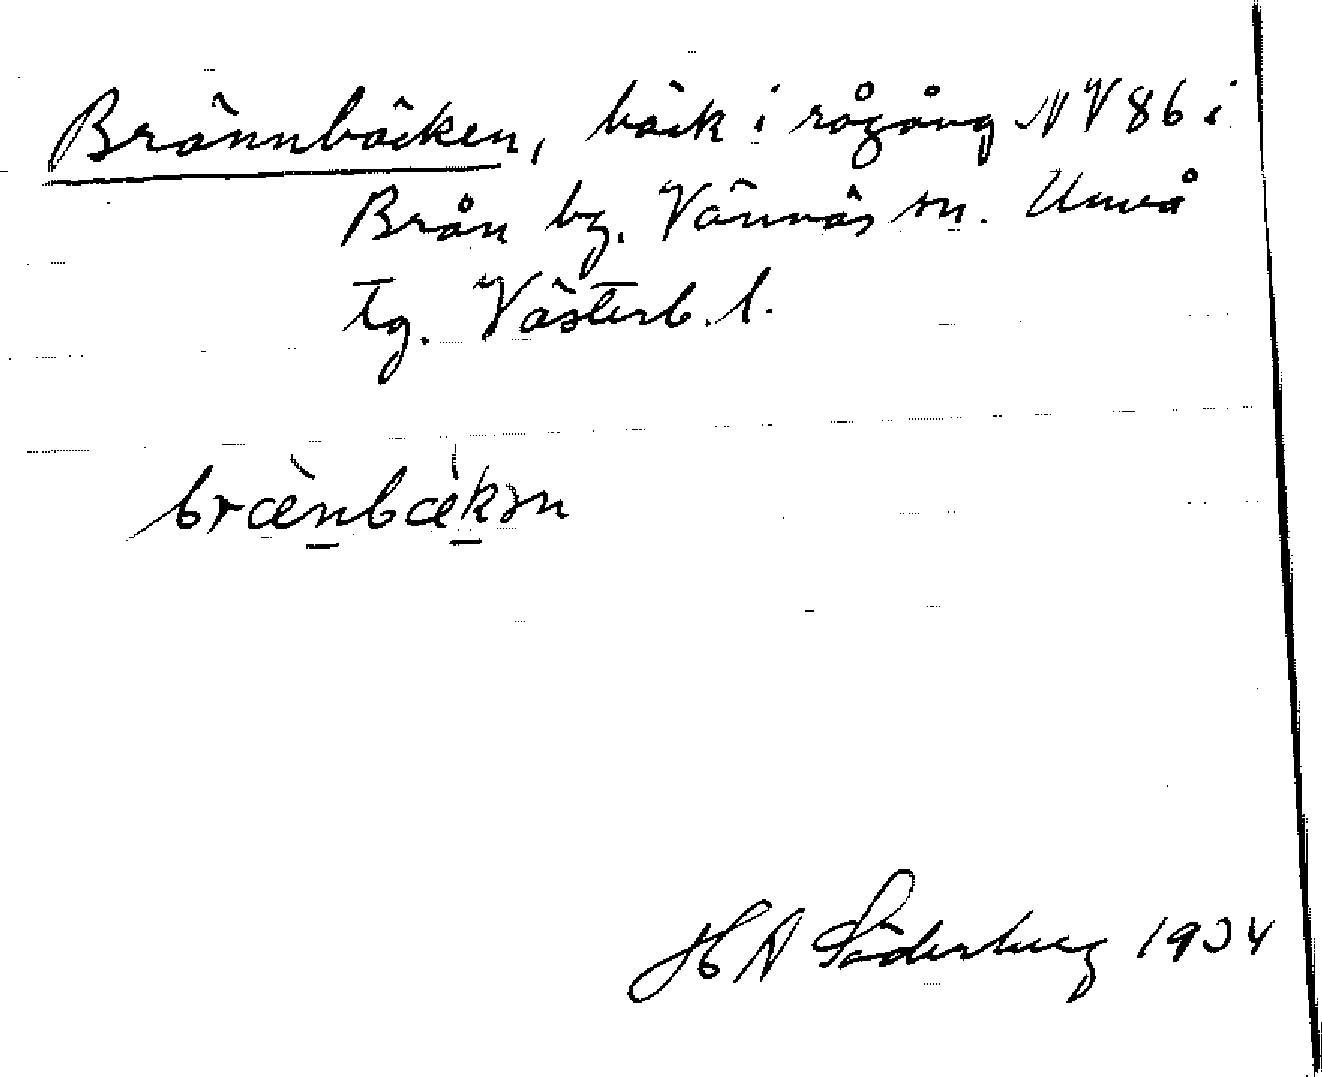 Brännbäcken, bäck i rågång NV 86 i
Brån by. Vännäs sn. Umeå
tg. Västerb. l.
bræ̀n̲bæ̀k̲ən
H A Söderberg 1934